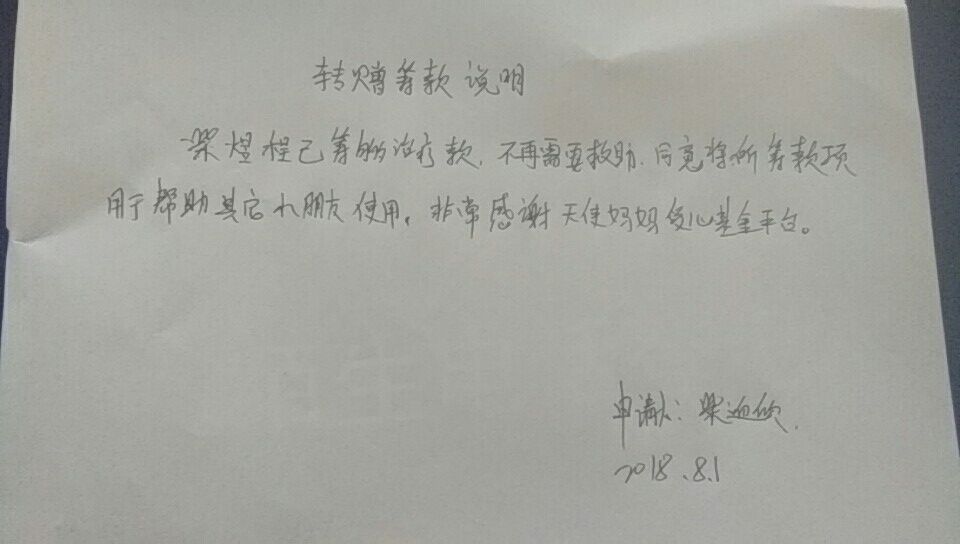 转赠筹款说明
梁煜程已筹够治疗款.不再需要救助.同意将所筹款项
用于帮助其它小朋友使用。非常感谢天使妈妈爱心基金平台。
申请人:梁
2018.8.1